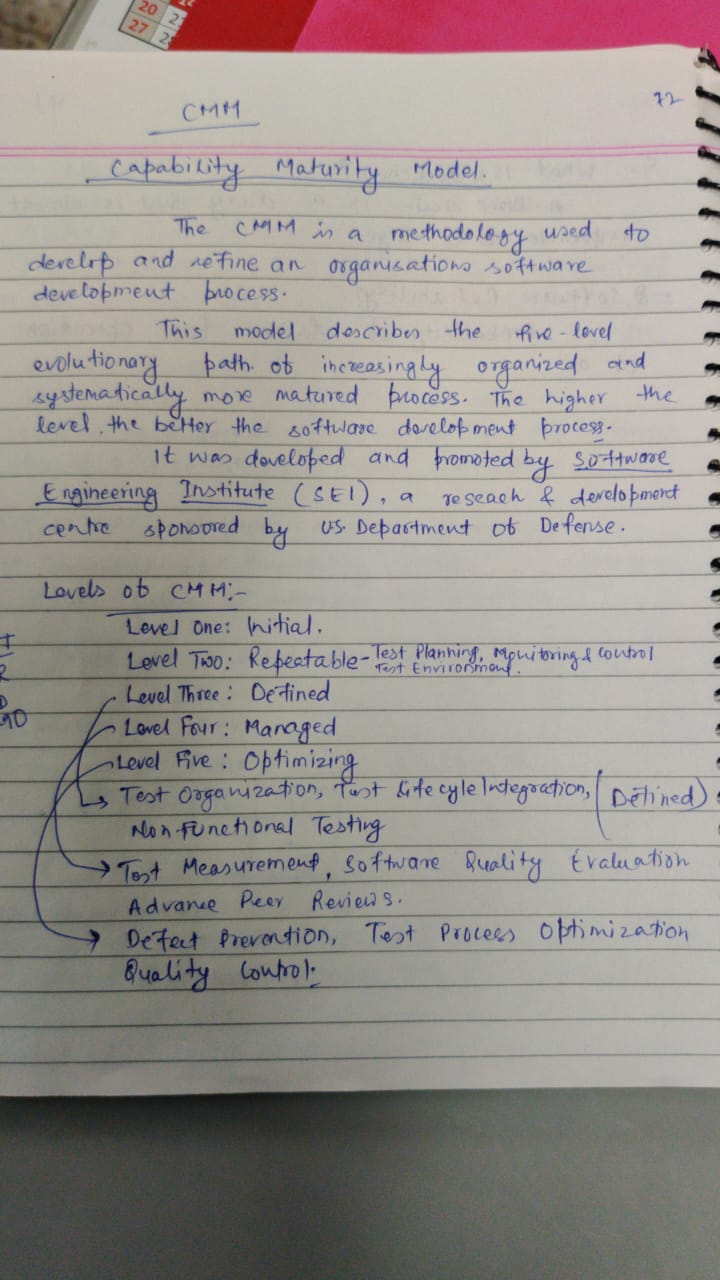 20
27
CMM
72
Capability Maturity Model.
The CMM is a methodology used to
develop and refine an organisations software
development process.
This model describes the five-level
evolutionary path of increasingly organized and
systematically more matured process. The higher the
level, the better the software development process.
It was developed and promoted by Software
Engineering Institute (SEI), a reseach & development
centre sponsored by US. Department of Defense.
Levels of CMM:-
Level one: Initial.
Level Two: Repeatable - Test Planning, Monitoring & Control
Test Environment.
Level Three: Defined
Level Four: Managed
Level Five: Optimizing
Test Organization, Test Lifecycle Integration, (Defined)
Non Functional Testing
Test Measurement, Software Quality Evaluation
Advance Peer Reviews.
Defect Prevention, Test Process Optimization
Quality Control.